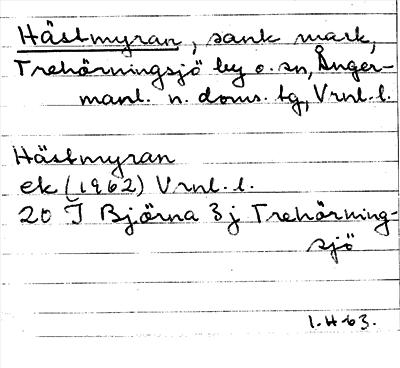 Hästmyran, sank mark,
Trehörningsjö by o. sn, Ånger-
manl. n. doms. tg, Vrnl. l.
Hästmyran
ek (1962) Vrnl. l.
20 J Björna 3 j Trehörning-
sjö
1.4-63.